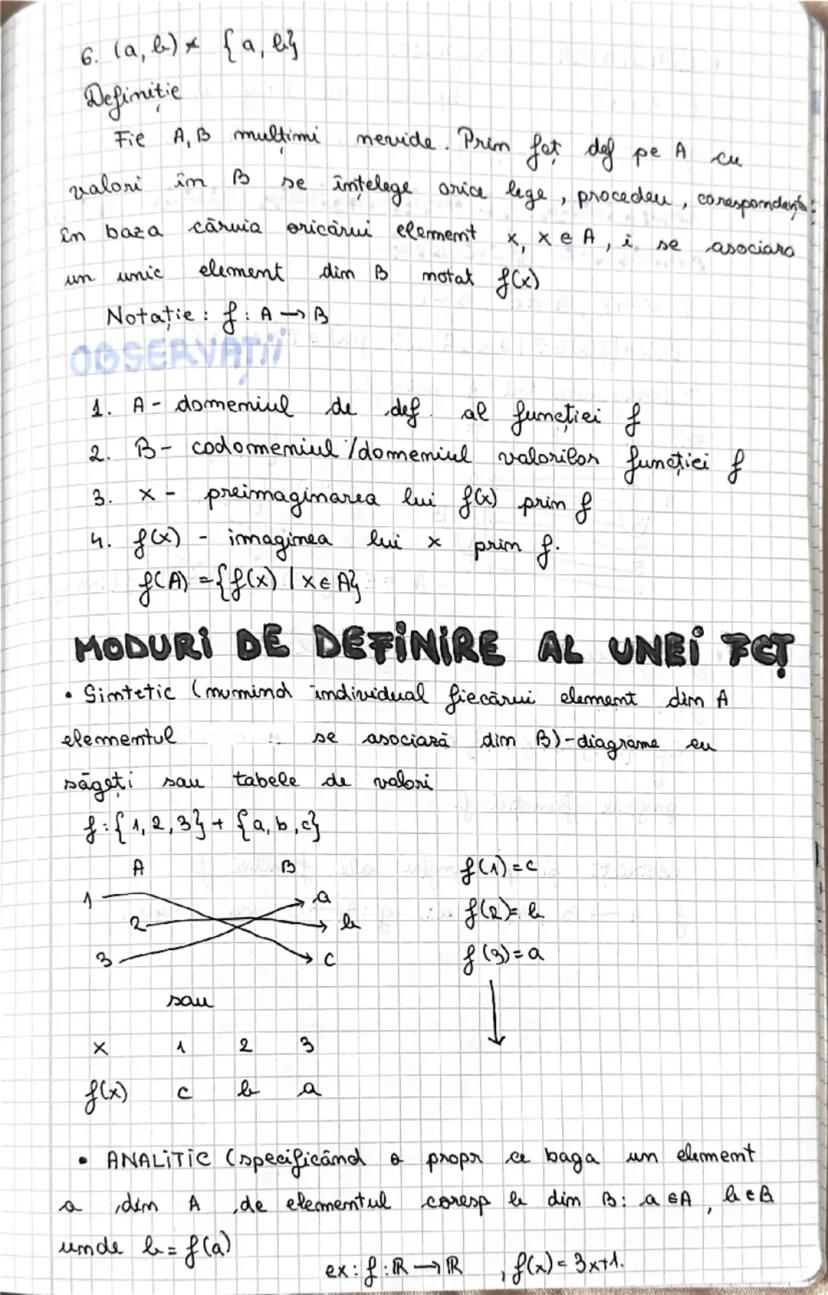 6. (a, b) ≠ {a, b}
Definiție
Fie A, B mulțimi nevide. Prin fcț def pe A cu
valori în B se înțelege orice lege, procedeu, corespondență:
în baza căruia oricărui element x, x ∈ A, i se asociara
un unic element din B notat f(x)
Notație: f: A → B
OBSERVAȚII
1. A - domeniul de def. al funcției f
2. B - codomeniul/domeniul valorilor funcției f
3. x - preimaginarea lui f(x) prin f
4. f(x) - imaginea lui x prin f.
f(A) = {f(x) | x ∈ A}
MODURI DE DEFINIRE AL UNEI FCȚ
• Sintetic (numind individual fiecărui element din A
elementul se asociază din B) - diagrame cu
săgeți sau tabele de valori
f: {1, 2, 3} + {a, b, c}
A B
1 a
2 b
3 c
f(1) = c
f(2) = b
f(3) = a
sau
x 1 2 3
f(x) c b a
• ANALITIC (specificând o propr ce baga un element
a din A de elementul coresp b din B: a ∈ A, b ∈ B
unde b = f(a)
ex: f: ℝ → ℝ, f(x) = 3x+1.